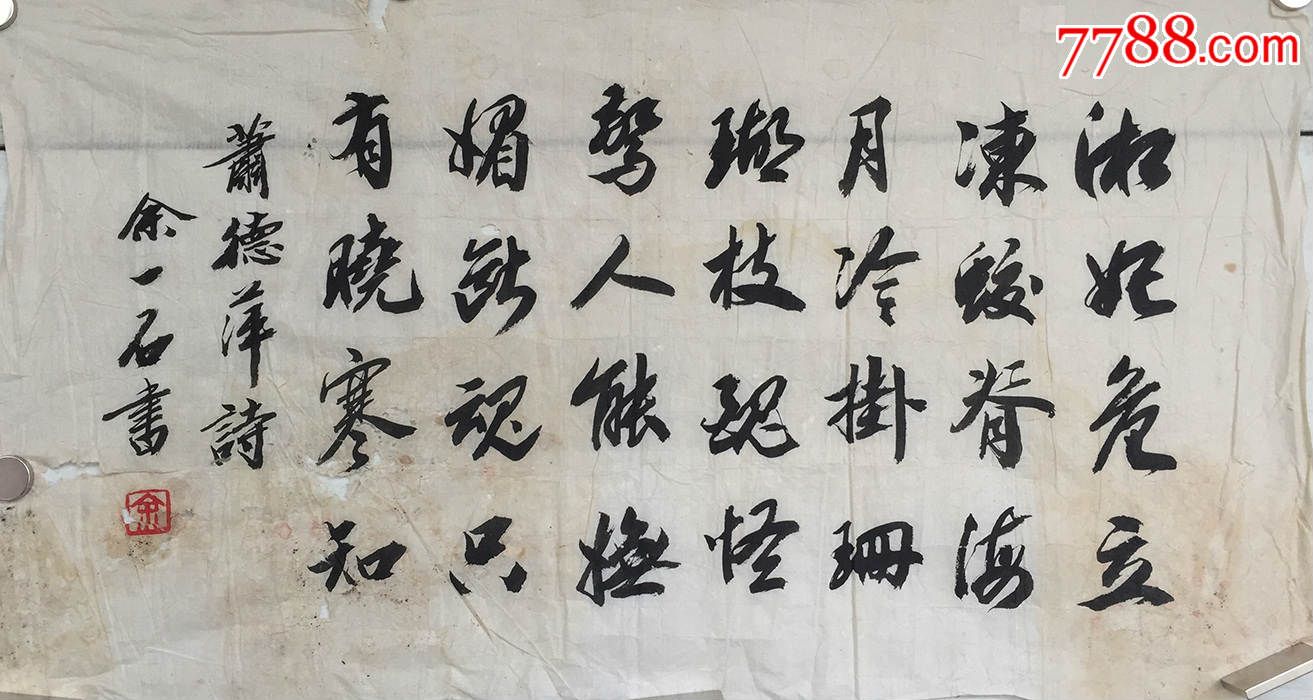 7788.com
湘妃危立
凍蛟脊海
月冷掛珊
瑚枝醜怪
驚人能嫵
媚斷魂只
有曉寒知
蕭德萍詩
余一石書
余